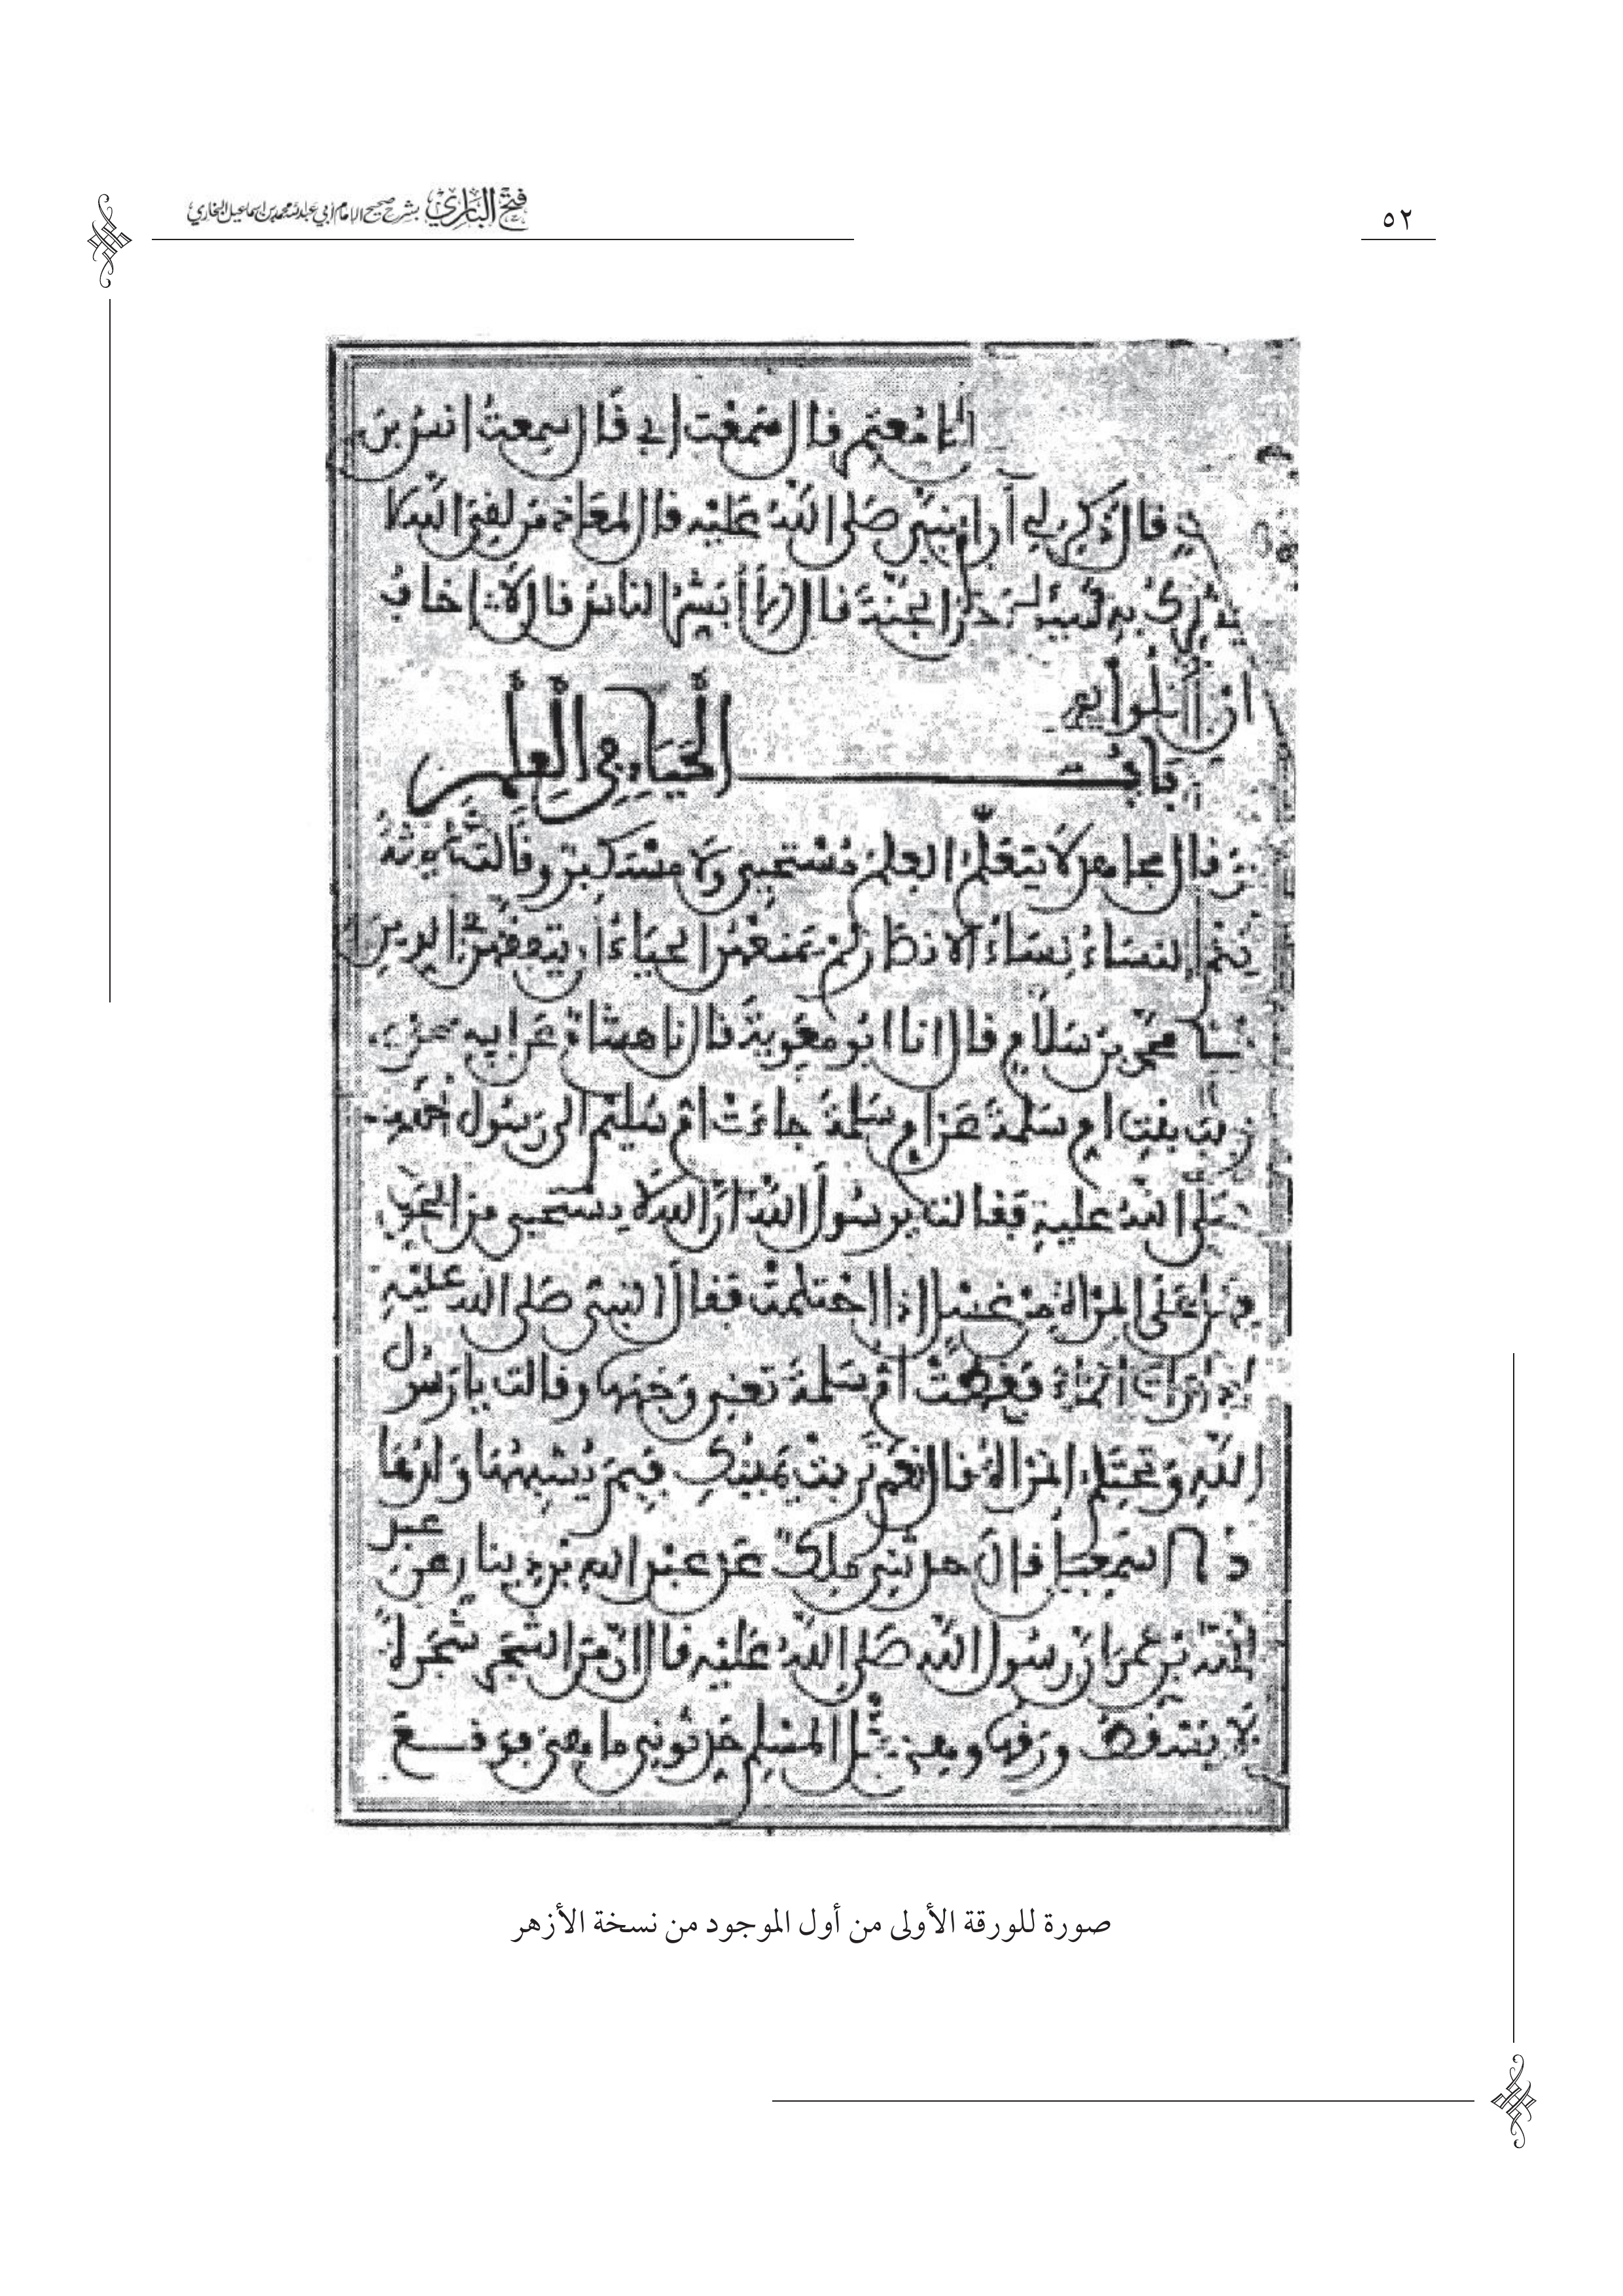 ٥٢
فتح الباري بشرح صحيح الإمام أبي عبد الله محمد بن إسماعيل البخاري
معتمر قال سمعت ابي قال سمعت انس بن
قال ذكر لي ان النبي صلى الله عليه قال لمعاذ من لقي الله لا
يشرك به شيئا دخل الجنة قال الا ابشر الناس قال لا اخاف
ان يتكلوا
باب الحياء في العلم
وقال مجاهد لا يتعلم العلم مستحيي ولا مستكبر وقالت عايشة
نعم النساء نساء الانصار لم يمنعهن الحياء ان يتفقهن في الدين
محمد بن سلام قال انا ابو معوية قال نا هشام عن ابيه عن
زينب بنت ام سلمة عن ام سلمة جاءت ام سليم الى رسول الله
صلى الله عليه فقالت يرسول الله ان الله لا يستحيي من الحق
فهل على المراة من غسل اذا احتلمت فقال النبي صلى الله عليه
اذا رات الماء فغطت ام سلمة تعني وجهها وقالت يا رسول
الله وتحتلم المراة قال نعم تربت يمينك فبم يشبهها ولدها
اسمعيل قال حدثني ملك عن عبد الله بن دينار عن عبد
الله بن عمر ان رسول الله صلى الله عليه قال ان من الشجر شجرة
لا يسقط ورقها وهي مثل المسلم حدثوني ما هي فوقع
صورة للورقة الأولى من أول الموجود من نسخة الأزهر